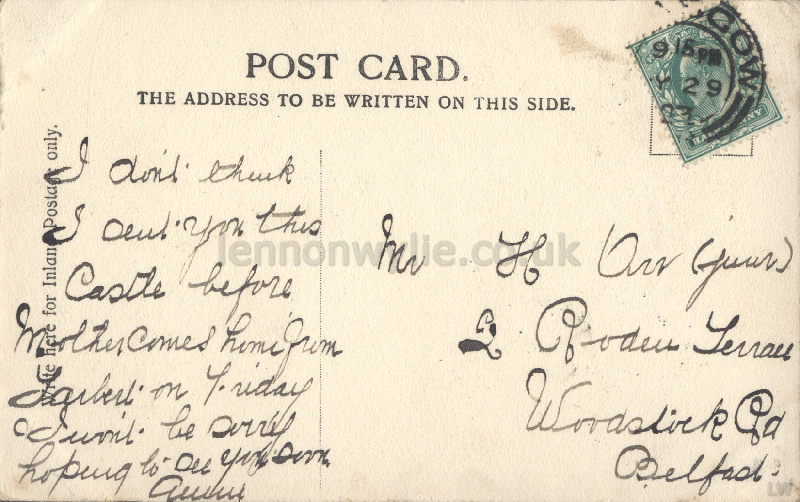 POST CARD.
THE ADDRESS TO BE WRITTEN ON THIS SIDE.
Write here for Inland Postage only.
COW
9 15 PM
29
HALFPENNY
I don't think
I sent you this
Castle before
Mother comes home from
Tarbert on Friday
I won't be sorry
hoping to see you soon
Annie
Mr H Orr (junr)
2 Roden Terrace
Woodstock Rd
Belfast
lennonwylie.co.uk
LW